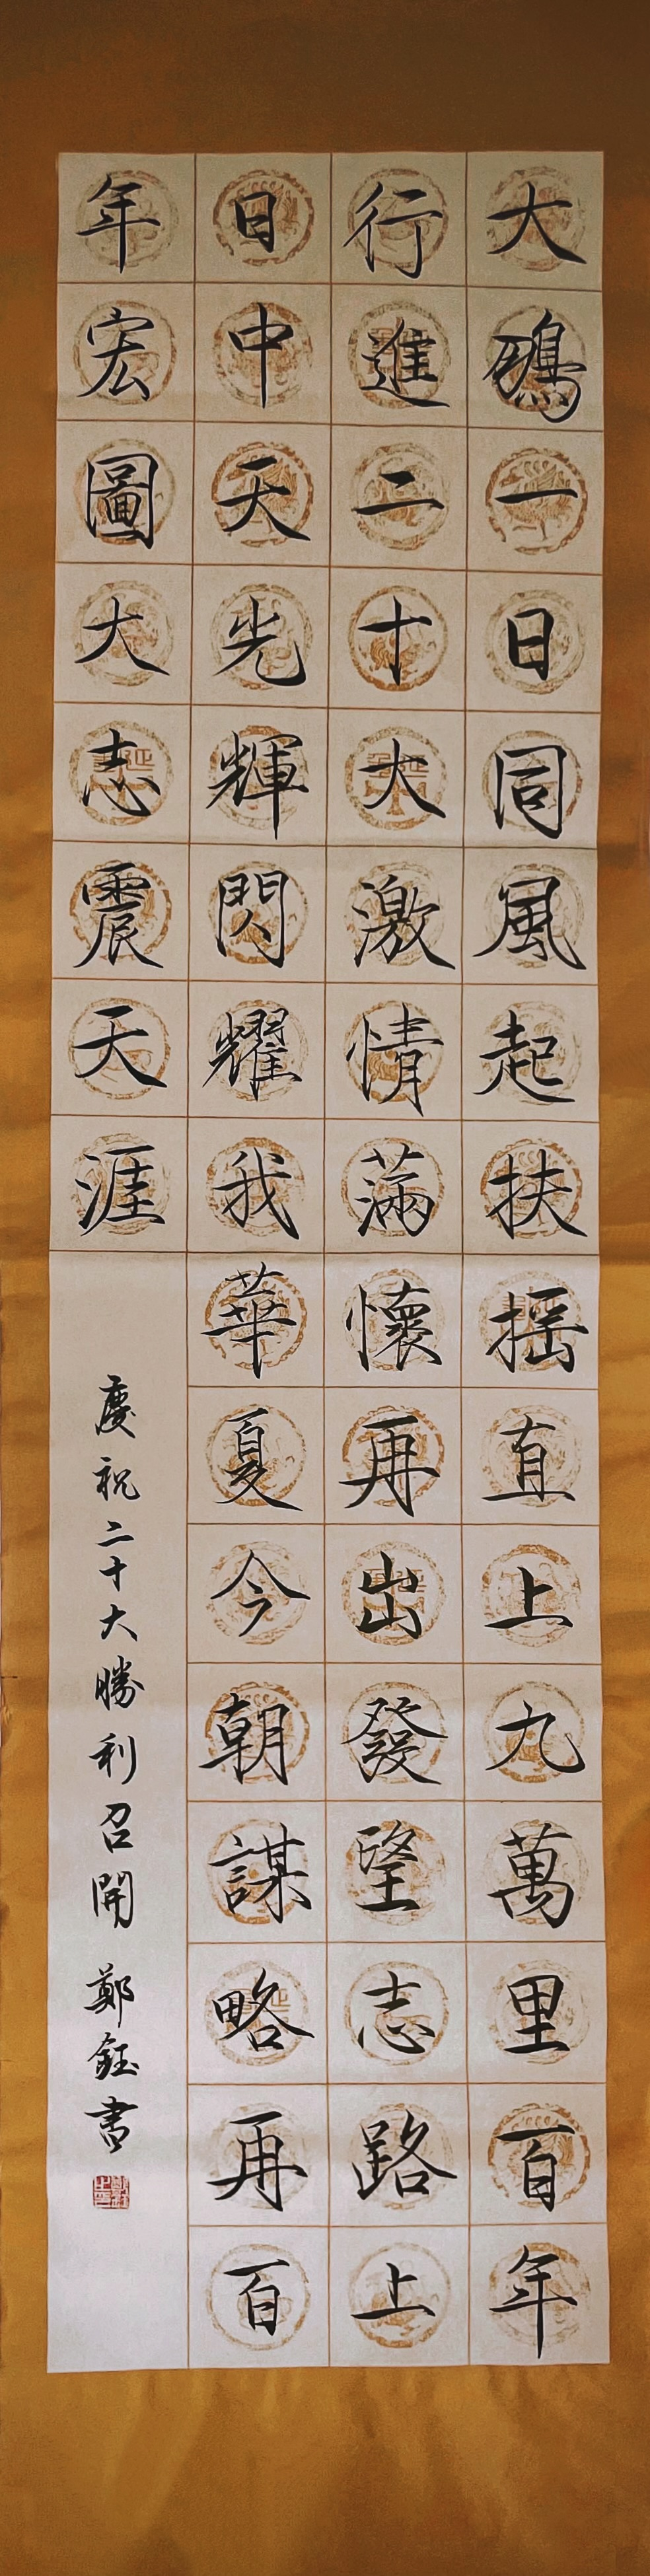 大鵬一日同風起扶摇直上九萬里百年
行進二十大激情滿懷再出發望志路上
日中天光輝閃耀我華夏今朝謀略再百
年宏圖大志震天涯
慶祝二十大勝利召開 鄭鈺書